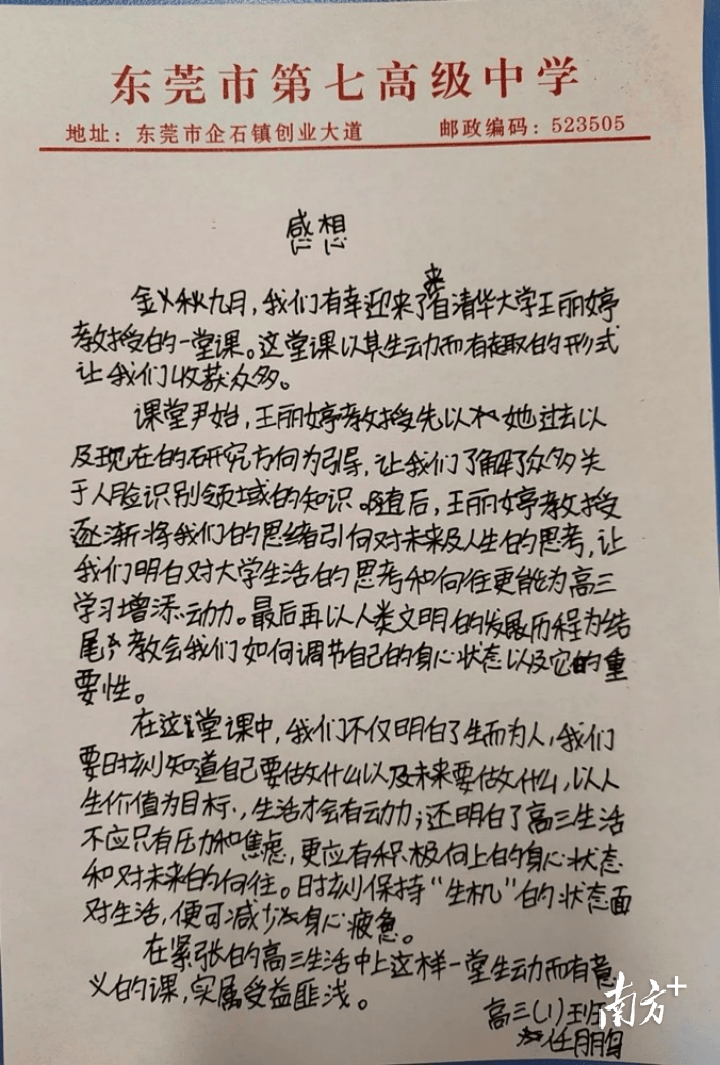 东莞市第七高级中学
地址：东莞市企石镇创业大道 邮政编码：523505
感想
金秋九月，我们有幸迎来了来自清华大学王丽婷
教授的一堂课。这堂课以其生动而有趣的形式
让我们收获众多。
课堂开始，王丽婷教授先以她过去以
及现在的研究方向为引导，让我们了解了众多关
于人脸识别领域的知识。随后，王丽婷教授
逐渐将我们的思绪引向对未来及人生的思考，让
我们明白对大学生活的思考和向往更能为高三
学习增添动力。最后再以人类文明的发展历程为结
尾，教会我们如何调节自己的身心状态以及它的重
要性。
在这堂课中，我们不仅明白了生而为人，我们
要时刻知道自己要做什么以及未来要做什么，以人
生价值为目标，生活才会有动力；还明白了高三生活
不应只有压力和焦虑，更应有积极向上的身心状态
和对未来的向往。时刻保持“生机”的状态面
对生活，便可减少身心疲惫。
在紧张的高三生活中上这样一堂生动而有意
义的课，实属受益匪浅。
高三(1)班
任鹏
南方+